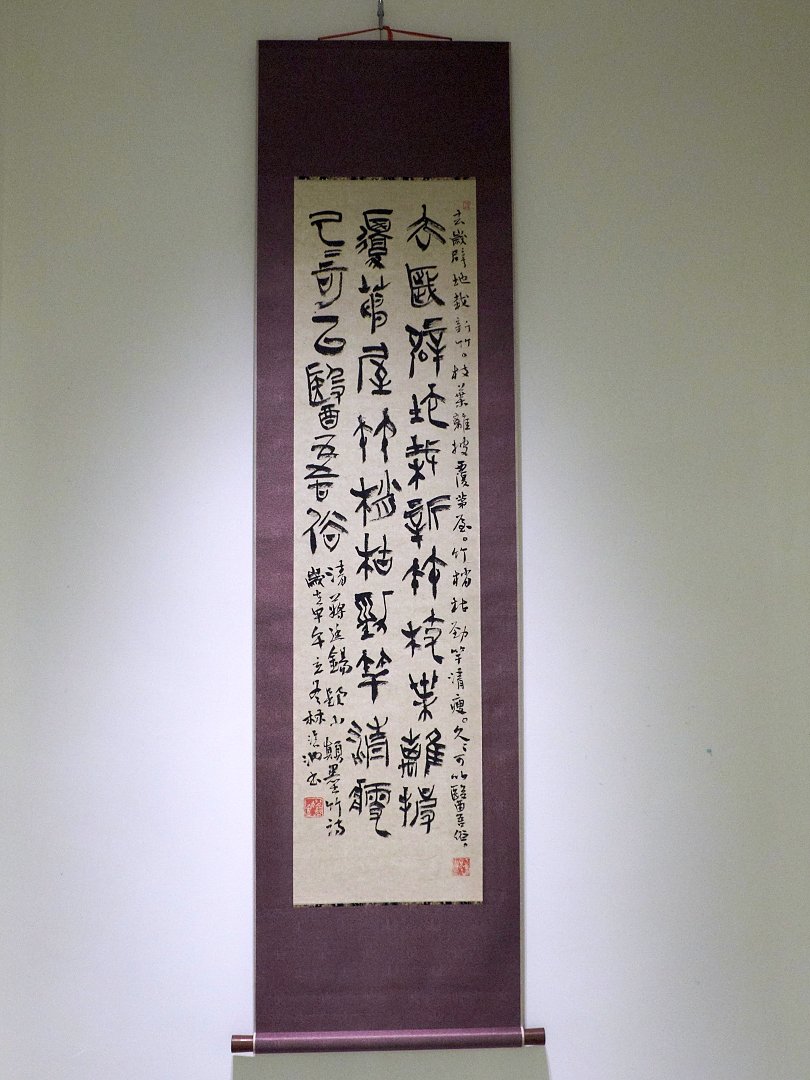 去歲辟地栽新竹。枝葉離披覆茅屋。竹梢枯勁竿清瘦。久〻可以醫吾俗。
去歲辟地栽新竹枝葉離披
覆茅屋竹梢枯勁竿清瘦
久〻可以醫吾俗
清蔣廷錫題小顛墨竹詩
歲在甲午立冬林書